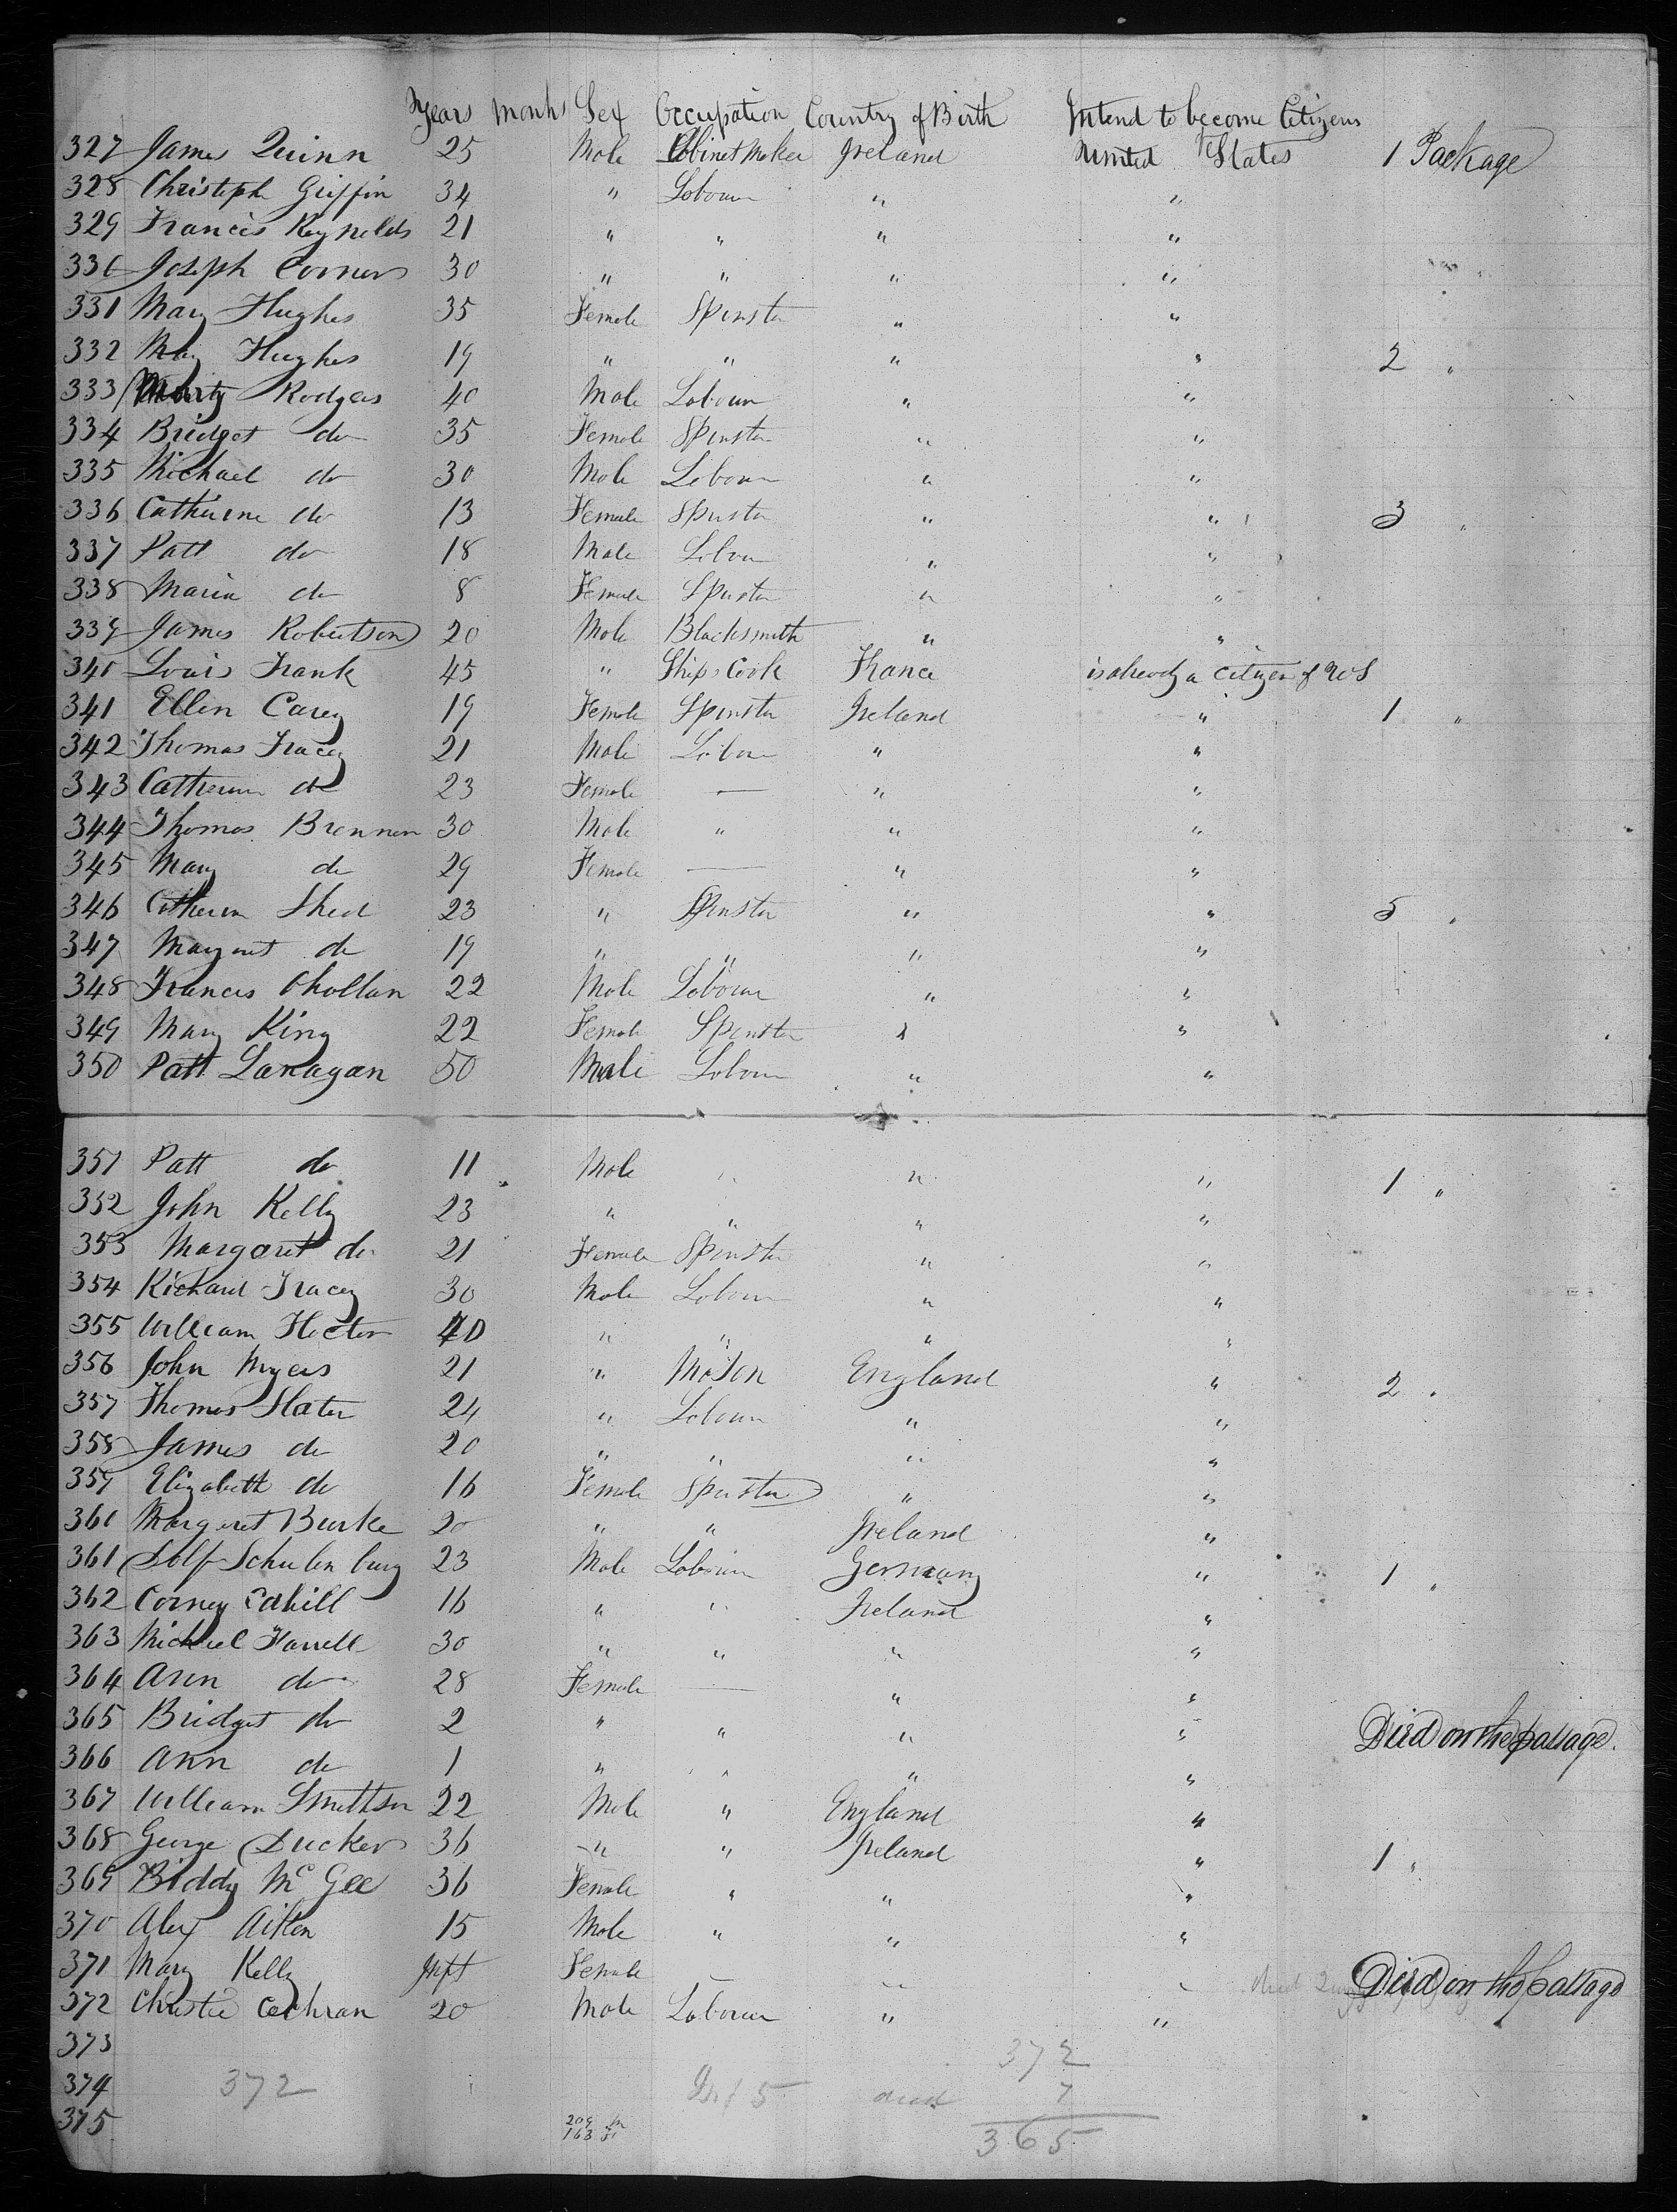 Years Months Sex Occupation Country of Birth Intend to become Citizens
327 James Quinn 25 Male Cabinet Maker Ireland United States 1 Package
328 Christoph Griffin 34 " Labourer " "
329 Francis Reynolds 21 " " " "
330 Joseph Connors 30 " " " "
331 Mary Hughes 35 Female Spinster " "
332 May Hughes 19 " " " " 2 "
333 Marty Rodgers 40 Male Labourer " "
334 Bridget do 35 Female Spinster " "
335 Michael do 30 Male Labourer " "
336 Catherine do 13 Female Spinster " " 3 "
337 Patt do 18 Male Labour " "
338 Maria do 8 Female Spinster " "
339 James Robertson 20 Male Blacksmith " "
340 Louis Frank 45 " Ships Cook France is already a Citizen of U S
341 Ellen Carey 19 Female Spinster Ireland " 1 "
342 Thomas Tracey 21 Male Labour " "
343 Catherine do 23 Female — " "
344 Thomas Brennen 30 Male " " "
345 Mary do 29 Female — " "
346 Catherin Shed 23 " Spinster " " 5 "
347 Margaret do 19 " " " "
348 Francis Ohollan 22 Male Labourer " "
349 Mary King 22 Female Spinster " "
350 Patt Lanagan 50 Male Labour " "
351 Patt do 11 Male " " " 1 "
352 John Kelly 23 " " " "
353 Margaret do 21 Female Spinster " "
354 Richard Tracey 30 Male Labour " "
355 William Hector 40 " " " "
356 John Myers 21 " Mason England " 2 "
357 Thomas Slater 24 " Labour " "
358 James do 20 " " " "
359 Elizabeth do 16 Female Spinster " "
360 Margaret Burke 20 " " Ireland "
361 Dolf Schulenburg 23 Male Labour Germany " 1 "
362 Corney Cahill 16 " " Ireland "
363 Michael Farrell 30 " " " "
364 Ann do 28 Female — " "
365 Bridget do 2 " " " " Died on the passage.
366 Ann do 1 " " " "
367 William Smithson 22 Male " England "
368 George Ducker 36 " " Ireland " 1 "
369 Biddy McGee 36 Female " " "
370 Alex Aitken 15 Male " " "
371 Mary Kelly Inft Female " " " died Died on the passage
372 Christie Cochran 20 Male Labourer " "
373 372
374 372 Inf 5 died 7
375 209 m 365
163 f